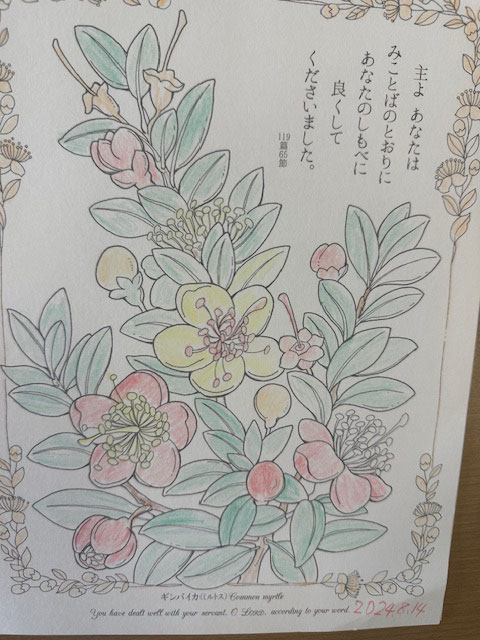 主よ あなたは
みことばのとおりに
あなたのしもべに
良くして
くださいました。
119篇65節
ギンバイカ(ミルトス) Common myrtle
You have dealt well with your servant, O LORD, according to your word.
2024.8.14